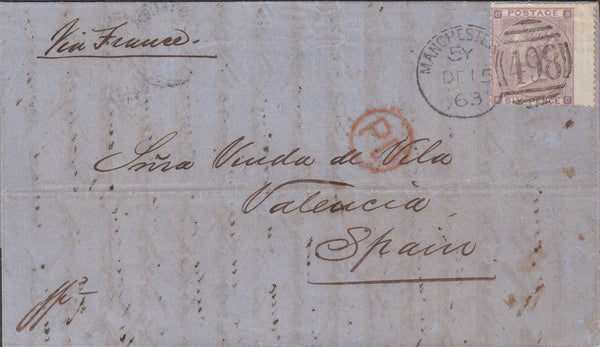 Via France.
POSTAGE
MANCHESTER
5Y
DE 15
63
498
SIX PENCE
PD
Sñra Viuda de Vila
Valencia
Spain